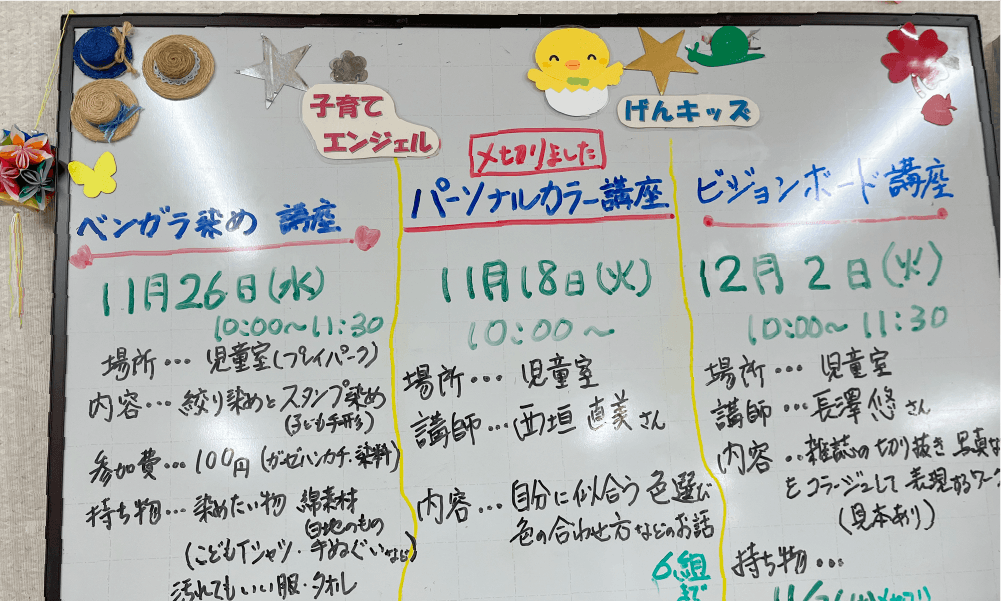 子育て
エンジェル
げんキッズ
ベンガラ染め 講座
11月26日(水)
10:00〜11:30
場所… 児童室(プレイパーク)
内容… 絞り染めとスタンプ染め
(子ども手形)
参加費… 100円(ガーゼハンカチ・染料)
持ち物… 染めたい物 綿素材
白地のもの
(こどもTシャツ・手ぬぐいなど)
汚れてもいい服・タオル
〆切りました
パーソナルカラー講座
11月18日(火)
10:00〜
場所… 児童室
講師… 西垣 直美さん
内容… 自分に似合う色選び
色の合わせ方などのお話
6組
まで
ビジョンボード講座
12月2日(火)
10:00〜11:30
場所… 児童室
講師… 長澤 悠さん
内容… 雑誌の切り抜き 写真な
をコラージュして表現するワーク
(見本あり)
持ち物…